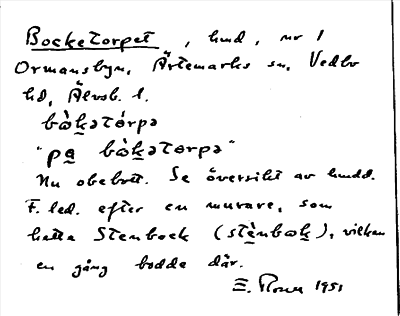 Bocketorpet, hmd, nr 1
Ormansbyn, Ärtemarks sn, Vedbo
hd, Älvsb. l.
bɷ̀k̲ətórpə
"pa̲ bɷ̀k̲ətorpə"
Nu obebott. Se översikt av hmdd.
F. led. efter en murare, som
hette Stenbock (stèn̲bɷk̲), vilken
en gång bodde där.
1951